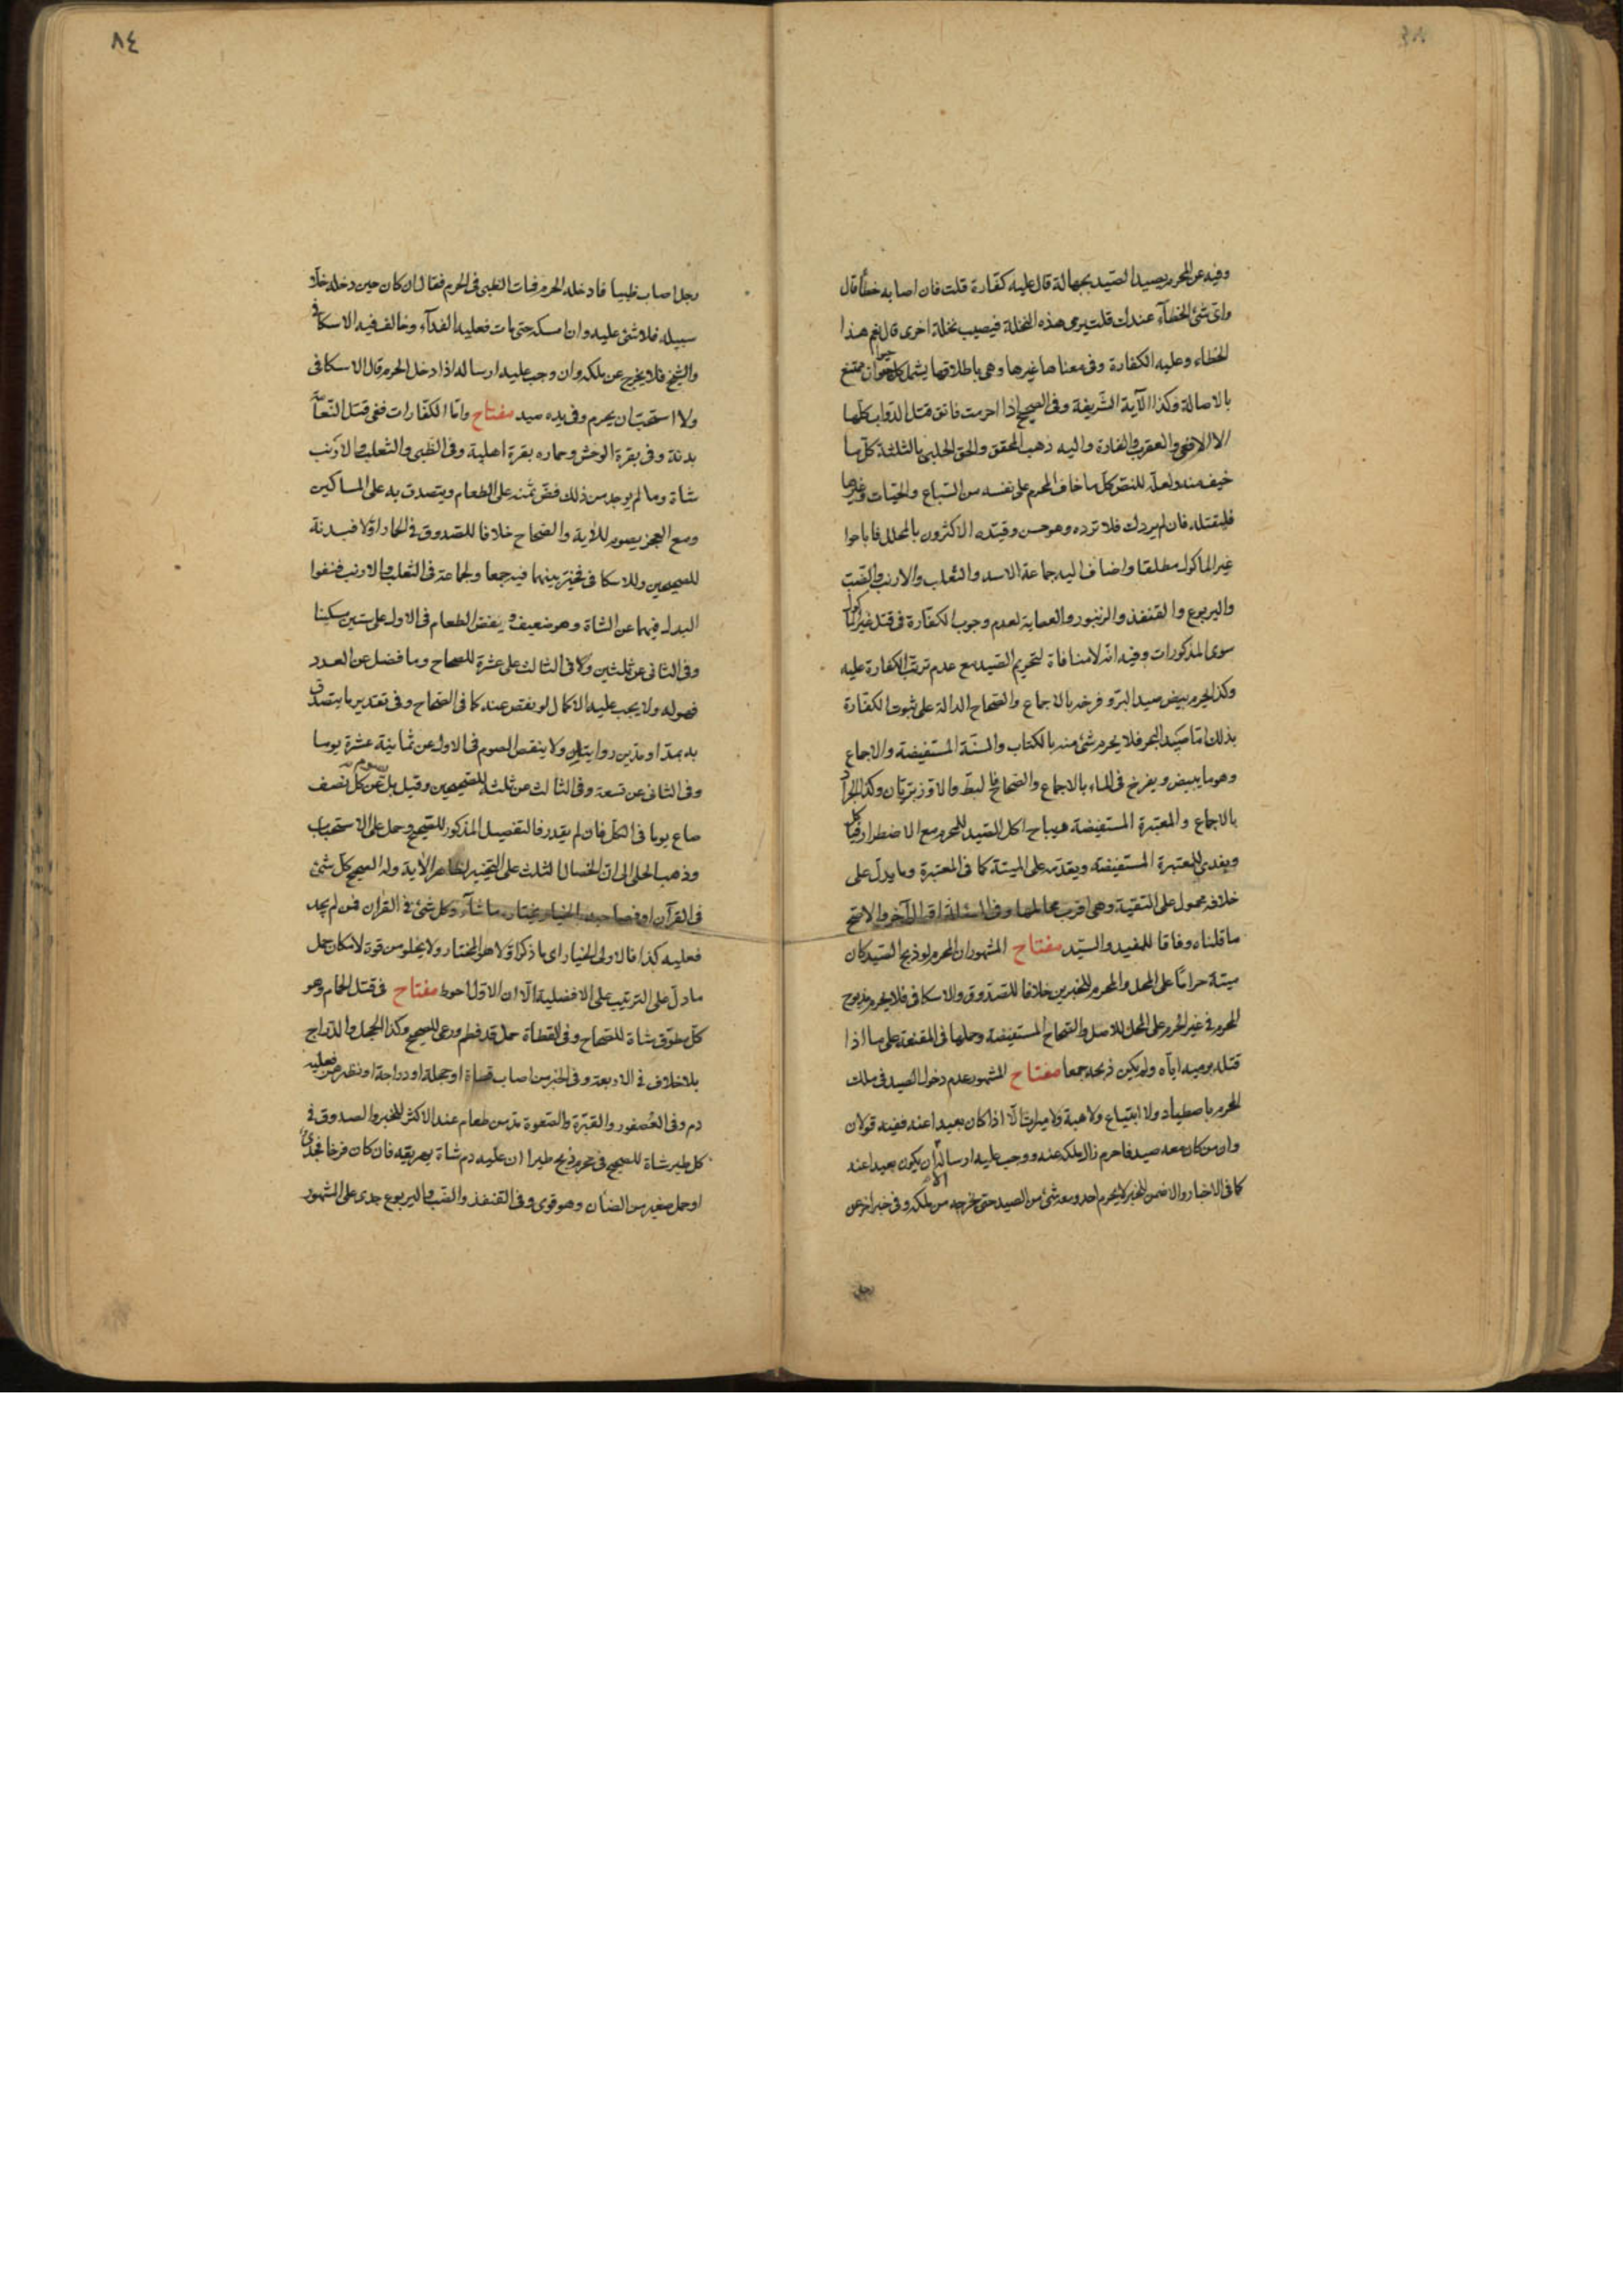 وفيه عن المحرم يصيد الصيد بجهالة قال عليه كفارة قلت فان اصابه خطأ قال
واى شئ الخطآء عندك قلت يرمى هذه النخلة فيصيب نخلة اخرى قال نعم هذا
الخطاء وعليه الكفارة وفى معناها غيرها وهى باطلاقها يشمل كل حيوان ممتنع
بالاصالة وكذا الآية الشريفة وفى الصحيح اذا احرمت فاتق قتل الدواب كلها
الا الافعى والعقرب والفارة واليه ذهب المحقق والحق الحلبى بالثلثة كل ما
خيف منه ولعله للنص كل ما خاف المحرم على نفسه من السباع والحيات وغيرها
فليقتله فان لم يردك فلا ترده وهو حسن وقيده الاكثرون بالمحلل فاباحوا
غير الماكول مطلقا واضاف اليه جماعة الاسد والثعلب والارنب والضب
واليربوع والقنفذ والزنبور والعظاية لعدم وجوب الكفارة فى قتل غير الماكول
سوى المذكورات وفيه انه لا منافاة لتحريم الصيد مع عدم ترتب الكفارة عليه
وكذا يحرم بيض صيد البر وفرخه بالاجماع والصحاح الدالة على ثبوت الكفارة
بذلك اما صيد البحر فلا يحرم شئ منه بالكتاب والسنة المستفيضة والاجماع
وهو ما يبيض ويفرخ فى الماء بالاجماع والصحاح فالبط والاوز بريان وكذا الجراد
بالاجماع والمعتبرة المستفيضة هيباح اكل الصيد للمحرم مع الاضطرار فياكل
ويفدى للمعتبرة المستفيضة ويقدمه على الميتة كما فى المعتبرة وما يدل على
خلافه محمول على التقية وهى اقرب محاملها وفى المسئلة اقوال آخر والاصح
ما قلناه وفاقا للمفيد والسيد مفتاح المشهور ان المحرم لو ذبح الصيد كان
ميتة حراما على المحل والمحرم للخبرين خلافا للصدوق والاسكافى فلا يحرم مذبوح
المحرم فى غير الحرم على المحل للاصل والصحاح المستفيضة وحملها فى المقنعة على ما اذا
قتله برميه اياه ولم يكن ذبحه جمعا مفتاح المشهور عدم دخول الصيد فى ملك
المحرم باصطياد ولا ابتياع ولا هبة ولا ميراث الا اذا كان بعيدا عنه ففيه قولان
وان من كان معه صيد فاحرم زال ملكه عنه ووجب عليه ارساله الا ان يكون بعيدا عنه
كما فى الاخبار والاضمن للخبر لا يحرم احد ومعه شئ من الصيد حتى يخرجه من ملكه وفى خبر اخر عن
رجل
٨٤
رجل اصاب ظبيا فادخله الحرم فمات الظبى فى الحرم فقال ان كان حين دخله خلا
سبيله فلا شئ عليه وان امسكه حتى مات فعليه الفدآء وخالف فيه الاسكافى
والشيخ فلا يخرج عن ملكه وان وجب عليه ارساله اذا دخل الحرم قال الاسكافى
ولا استحب ان يحرم وفى يده صيد مفتاح واما الكفارات ففى قتل النعامة
بدنة وفى بقرة الوحش وحماره بقرة اهلية وفى الظبى والثعلب والارنب
شاة وما لم يوجد من ذلك فض ثمنه على الطعام ويتصدق به على المساكين
ومع العجز يصوم للاية والصحاح خلافا للصدوق فى الحمار اولا فبدنة
للصحيحين وللاسكافى فخير بينهما فيه جمعا ولجماعة فى الثعلب والارنب فنفوا
البدل فيهما عن الشاة وهو ضعيف ويفض الطعام فى الاول على ستين مسكينا
وفى الثانى عن ثلثين وكا فى الثالث على عشرة للصحاح وما فضل عن العدد
فهو له ولا يجب عليه الاكمال لو نقص عنه كما فى الصحاح وفى تقدير ما يتصدق
به بمد او مدين روايتان ولا ينقص الصوم فى الاول عن ثمانية عشرة يوما
وفى الثانى عن تسعة وفى الثالث عن ثلثة للصحيحين وقيل بل يصوم عن كل نصف
صاع يوما فى الكل فان لم يقدر فالتفصيل المذكور للصحيح وحمل على الاستحباب
وذهب الحلى الى ان الخصال الثلث على التخيير لظاهر الاية وله الصحيح كل شئ
فى القرآن او فصاحبه بالخيار يختار ما شآء وكل شئ فى القران فمن لم يجد
فعليه كذا فالاولى الخيار اى ما ذكر اولا هو المختار ولا يخلو من قوة لامكان حمل
ما دل على الترتيب على الافضلية الا ان الاول احوط مفتاح فى قتل الحمام وهو
كل مطوق شاة للصحاح وفى القطاة حمل قد فطم ورعى للصحيح وكذا الحجل والدراج
بلا خلاف فى الاربعة وفى الخبر من اصاب قطاة او حجلة او دراجة او نظيرهن فعليه
دم وفى العصفور والقبرة والصعوة مد من طعام عند الاكثر للخبر والصدوق فى
كل طير شاة للصحيح فى محرم ذبح طيرا ان عليه دم شاة يهريقه فان كان فرخا فجدى
او حمل صغير من الضان وهو قوى وفى القنفذ والضب واليربوع جدى على المشهور